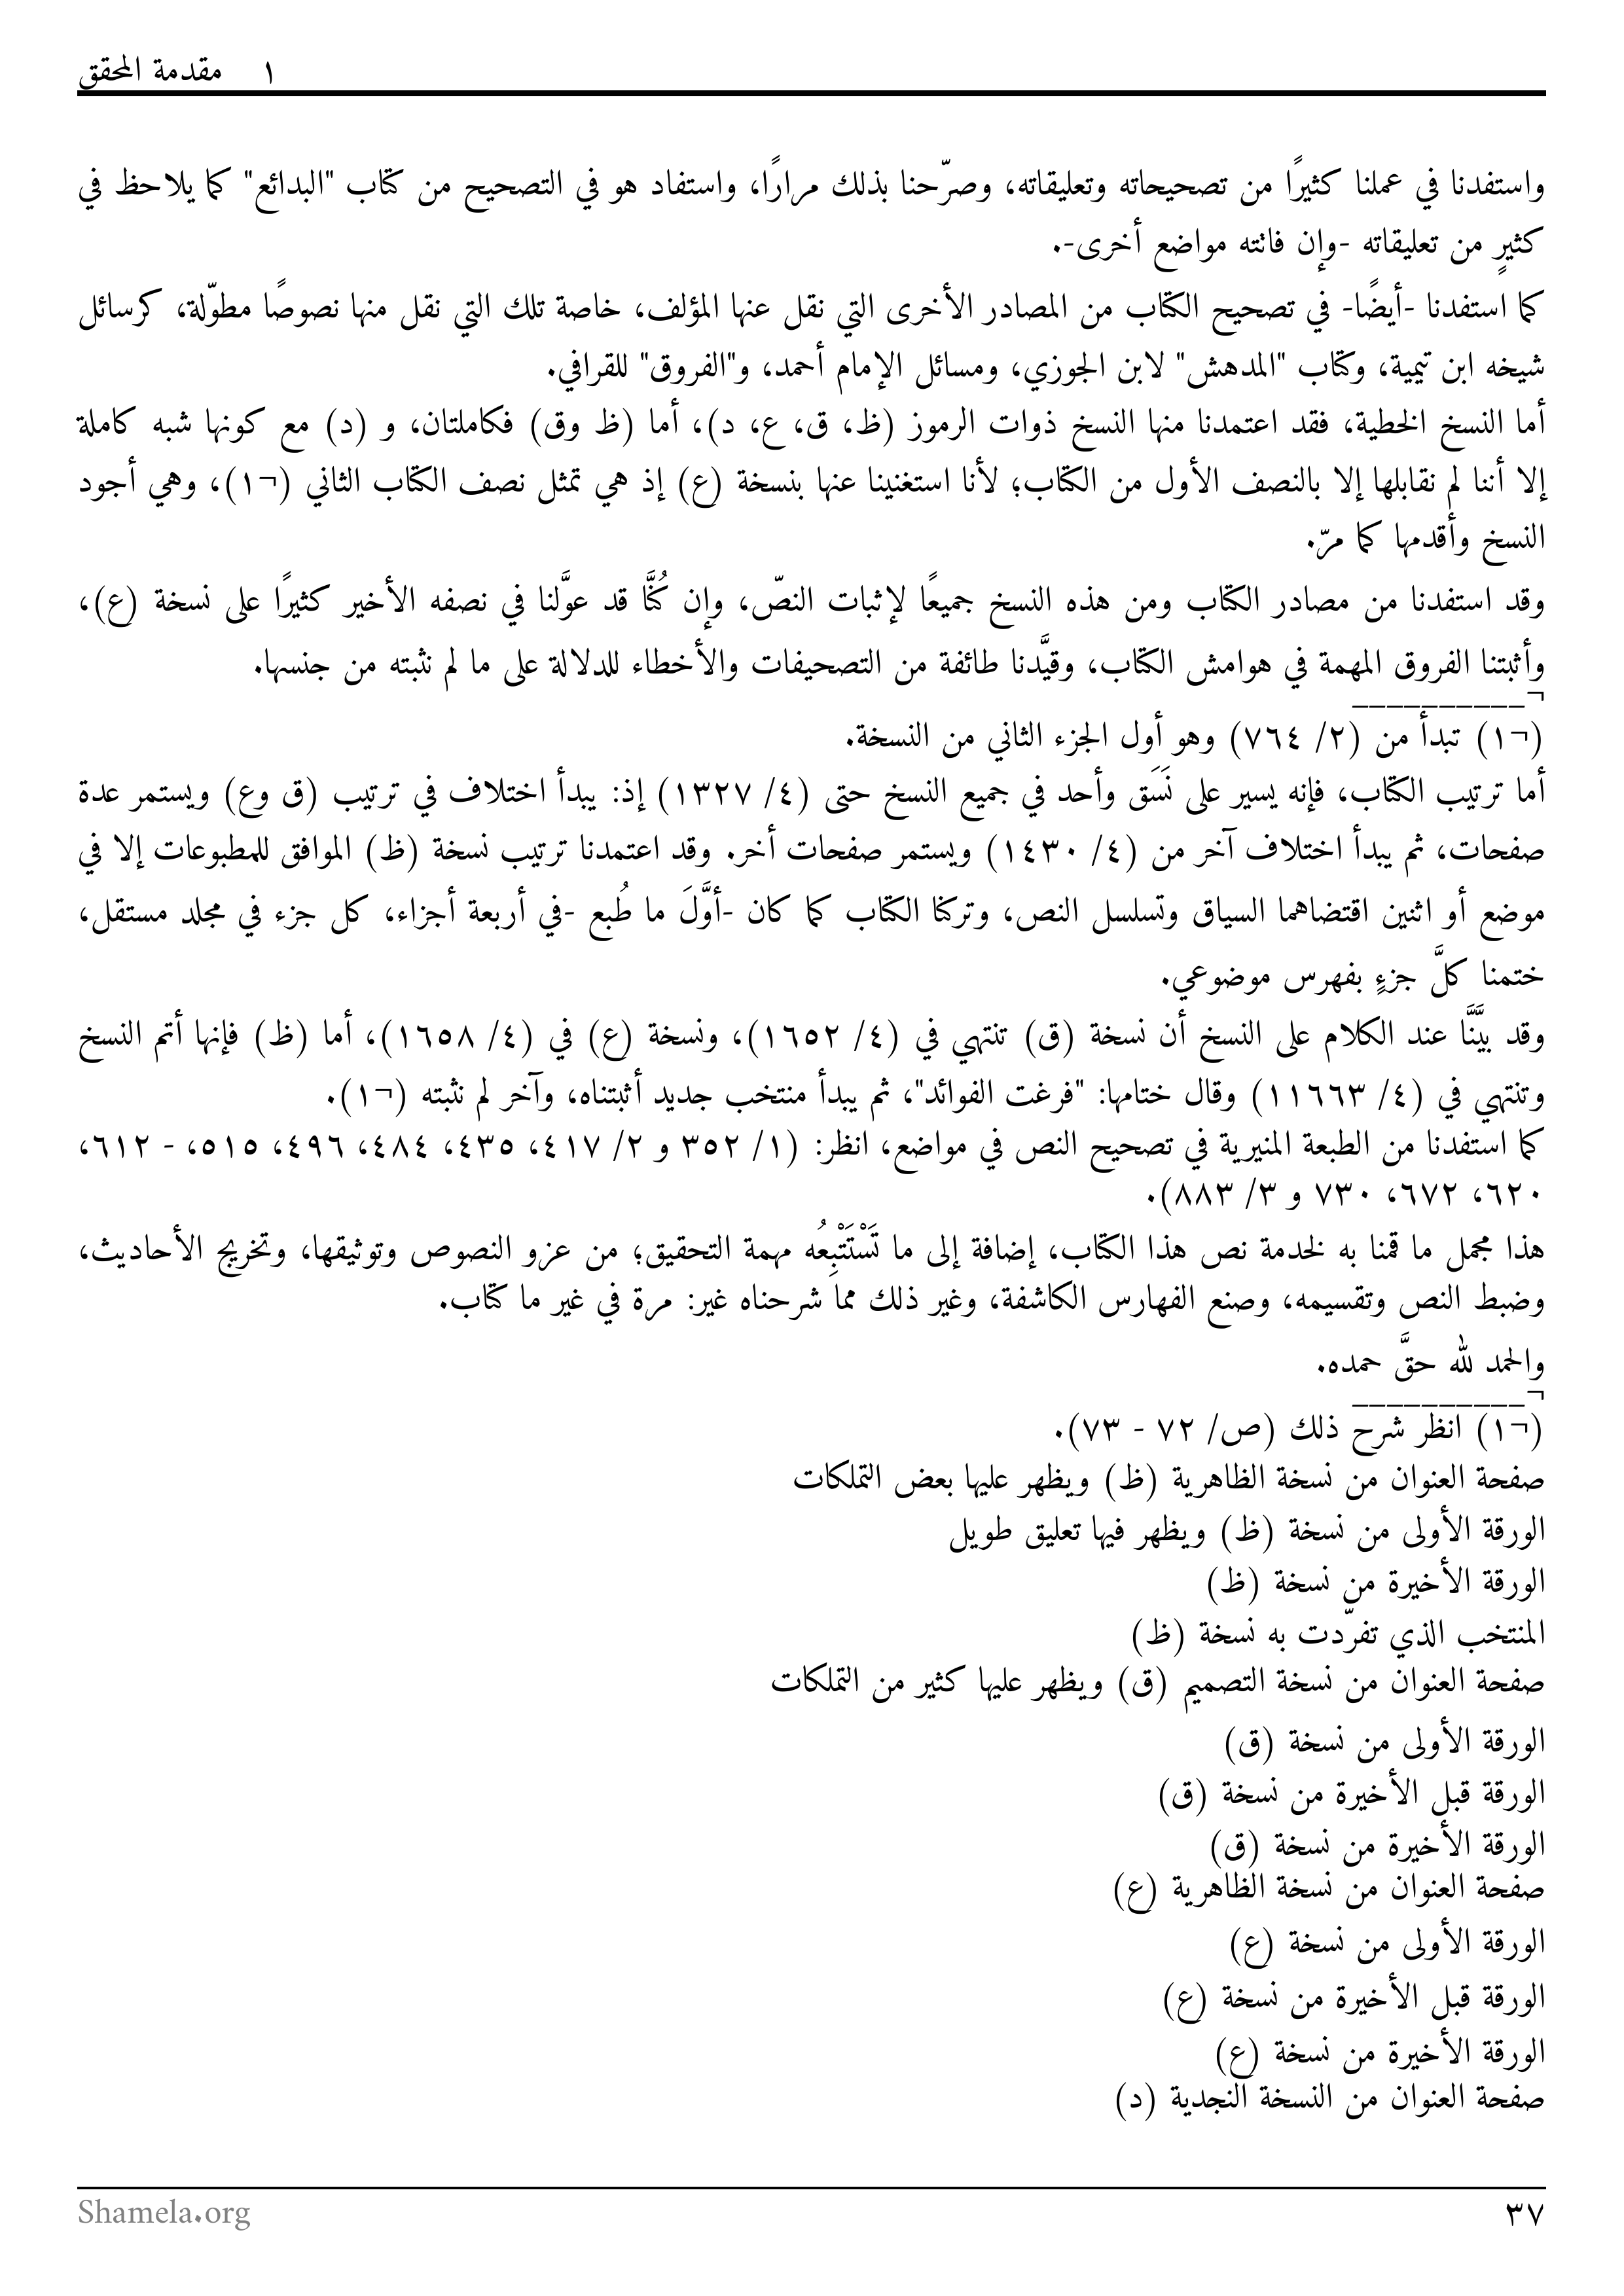 ١ مقدمة المحقق
واستفدنا في عملنا كثيرًا من تصحيحاته وتعليقاته، وصرّحنا بذلك مرارًا، واستفاد هو في التصحيح من كتاب "البدائع" كما يلاحظ في
كثيرٍ من تعليقاته -وإن فاتته مواضع أخرى-.
كما استفدنا -أيضًا- في تصحيح الكتاب من المصادر الأخرى التي نقل عنها المؤلف، خاصة تلك التي نقل منها نصوصًا مطوّلة، كرسائل
شيخه ابن تيمية، وكتاب "المدهش" لابن الجوزي، ومسائل الإمام أحمد، و"الفروق" للقرافي.
أما النسخ الخطية، فقد اعتمدنا منها النسخ ذوات الرموز (ظ، ق، ع، د)، أما (ظ وق) فكاملتان، و (د) مع كونها شبه كاملة
إلا أننا لم نقابلها إلا بالنصف الأول من الكتاب؛ لأنا استغنينا عنها بنسخة (ع) إذ هي تمثل نصف الكتاب الثاني (¬١)، وهي أجود
النسخ وأقدمها كما مرّ.
وقد استفدنا من مصادر الكتاب ومن هذه النسخ جميعًا لإثبات النصّ، وإن كُنَّا قد عوَّلنا في نصفه الأخير كثيرًا على نسخة (ع)،
وأثبتنا الفروق المهمة في هوامش الكتاب، وقيَّدنا طائفة من التصحيفات والأخطاء للدلالة على ما لم نثبته من جنسها.
¬__________
(¬١) تبدأ من (٢/ ٧٦٤) وهو أول الجزء الثاني من النسخة.
أما ترتيب الكتاب، فإنه يسير على نَسَق وأحد في جميع النسخ حتى (٤/ ١٣٢٧) إذ: يبدأ اختلاف في ترتيب (ق وع) ويستمر عدة
صفحات، ثم يبدأ اختلاف آخر من (٤/ ١٤٣٠) ويستمر صفحات أخر. وقد اعتمدنا ترتيب نسخة (ظ) الموافق للمطبوعات إلا في
موضع أو اثنين اقتضاهما السياق وتسلسل النص، وتركنا الكتاب كما كان -أوَّلَ ما طُبع -في أربعة أجزاء، كل جزء في مجلد مستقل،
ختمنا كلَّ جزءٍ بفهرس موضوعي.
وقد بيَّنَّا عند الكلام على النسخ أن نسخة (ق) تنتهي في (٤/ ١٦٥٢)، ونسخة (ع) في (٤/ ١٦٥٨)، أما (ظ) فإنها أتم النسخ
وتنتهي في (٤/ ١١٦٦٣) وقال ختامها: "فرغت الفوائد"، ثم يبدأ منتخب جديد أثبتناه، وآخر لم نثبته (¬١).
كما استفدنا من الطبعة المنيرية في تصحيح النص في مواضع، انظر: (١/ ٣٥٢ و ٢/ ٤١٧، ٤٣٥، ٤٨٤، ٤٩٦، ٥١٥، - ٦١٢،
٦٢٠، ٦٧٢، ٧٣٠ و ٣/ ٨٨٣).
هذا مجمل ما قمنا به لخدمة نص هذا الكتاب، إضافة إلى ما تَسْتَتْبِعُه مهمة التحقيق؛ من عزو النصوص وتوثيقها، وتخريج الأحاديث،
وضبط النص وتقسيمه، وصنع الفهارس الكاشفة، وغير ذلك مما شرحناه غير: مرة في غير ما كتاب.
والحمد لله حقَّ حمده.
¬__________
(¬١) انظر شرح ذلك (ص/ ٧٢ - ٧٣).
صفحة العنوان من نسخة الظاهرية (ظ) ويظهر عليها بعض التملكات
الورقة الأولى من نسخة (ظ) ويظهر فيها تعليق طويل
الورقة الأخيرة من نسخة (ظ)
المنتخب الذي تفرّدت به نسخة (ظ)
صفحة العنوان من نسخة التصميم (ق) ويظهر عليها كثير من التملكات
الورقة الأولى من نسخة (ق)
الورقة قبل الأخيرة من نسخة (ق)
الورقة الأخيرة من نسخة (ق)
صفحة العنوان من نسخة الظاهرية (ع)
الورقة الأولى من نسخة (ع)
الورقة قبل الأخيرة من نسخة (ع)
الورقة الأخيرة من نسخة (ع)
صفحة العنوان من النسخة النجدية (د)
٣٧
Shamela.org